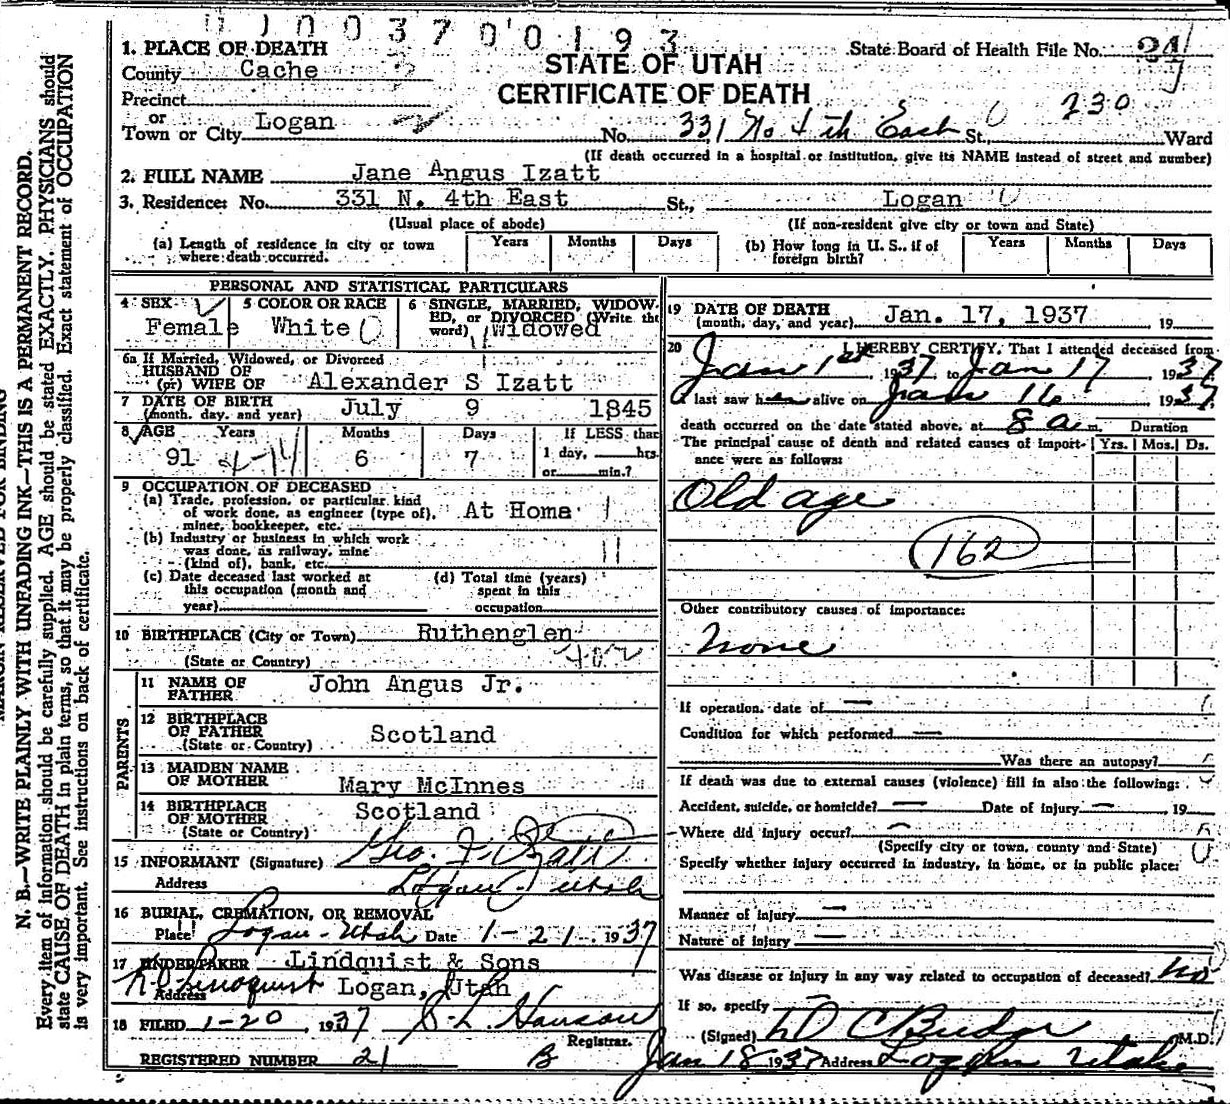 0 1 0 0 3 7 0 0 1 9 3
1. PLACE OF DEATH
County Cache
Precinct
or
Town or City Logan
STATE OF UTAH
CERTIFICATE OF DEATH
State Board of Health File No. 21
230
No. 331 No 4th East St., Ward
(If death occurred in a hospital or institution, give its NAME instead of street and number)
2. FULL NAME Jane Angus Izatt
3. Residence: No. 331 N. 4th East St., Logan
(Usual place of abode) (If non-resident give city or town and State)
(a) Length of residence in city or town where death occurred. Years Months Days (b) How long in U. S., if of foreign birth? Years Months Days
PERSONAL AND STATISTICAL PARTICULARS
4 SEX 5 COLOR OR RACE 6 SINGLE, MARRIED, WIDOW-
ED, or DIVORCED (Write the
word)
Female White Widowed
6a If Married, Widowed, or Divorced
HUSBAND OF
(or) WIFE OF Alexander S Izatt
7 DATE OF BIRTH
(month, day, and year) July 9 1845
8 AGE Years Months Days If LESS than
1 day, hrs.
or min.?
91 6 7
9 OCCUPATION OF DECEASED
(a) Trade, profession, or particular kind
of work done, as engineer (type of),
miner, bookkeeper, etc. At Home
(b) Industry or business in which work
was done, as railway, mine
(kind of), bank, etc.
(c) Date deceased last worked at
this occupation (month and
year)
(d) Total time (years)
spent in this
occupation
10 BIRTHPLACE (City or Town) Ruthenglen
(State or Country)
PARENTS
11 NAME OF
FATHER John Angus Jr.
12 BIRTHPLACE
OF FATHER Scotland
(State or Country)
13 MAIDEN NAME
OF MOTHER Mary McInnes
14 BIRTHPLACE
OF MOTHER Scotland
(State or Country)
15 INFORMANT (Signature) Geo. F. Izatt
Address Logan Utah
16 BURIAL, CREMATION, OR REMOVAL
Place Logan - Utah Date 1-21- 1937
17 UNDERTAKER Lindquist & Sons
Address Logan, Utah
18 FILED 1-20, 1937
Registrar.
REGISTERED NUMBER 21 B
19 DATE OF DEATH
(month, day, and year) Jan. 17, 1937 19
20 I HEREBY CERTIFY, That I attended deceased from
Jan 1st 1937, to Jan 17, 1937
I last saw her alive on Jan 16 1937,
death occurred on the date stated above, at 8 a m. Duration
The principal cause of death and related causes of import-
ance were as follows: Yrs. Mos. Ds.
Old age
162
Other contributory causes of importance:
None
If operation, date of —
Condition for which performed —
Was there an autopsy?
If death was due to external causes (violence) fill in also the following:
Accident, suicide, or homicide? — Date of injury — 19
Where did injury occur? —
(Specify city or town, county and State)
Specify whether injury occurred in industry, in home, or in public place:
Manner of injury —
Nature of injury —
Was disease or injury in any way related to occupation of deceased? No
If so, specify
(Signed) D C Budge M.D.
Jan 18 1937 Address Logan Utah
MARGIN RESERVED FOR BINDING
N. B.—WRITE PLAINLY WITH UNFADING INK—THIS IS A PERMANENT RECORD.
Every item of information should be carefully supplied. AGE should be stated EXACTLY. PHYSICIANS should
state CAUSE OF DEATH in plain terms, so that it may be properly classified. Exact statement of OCCUPATION
is very important. See instructions on back of certificate.